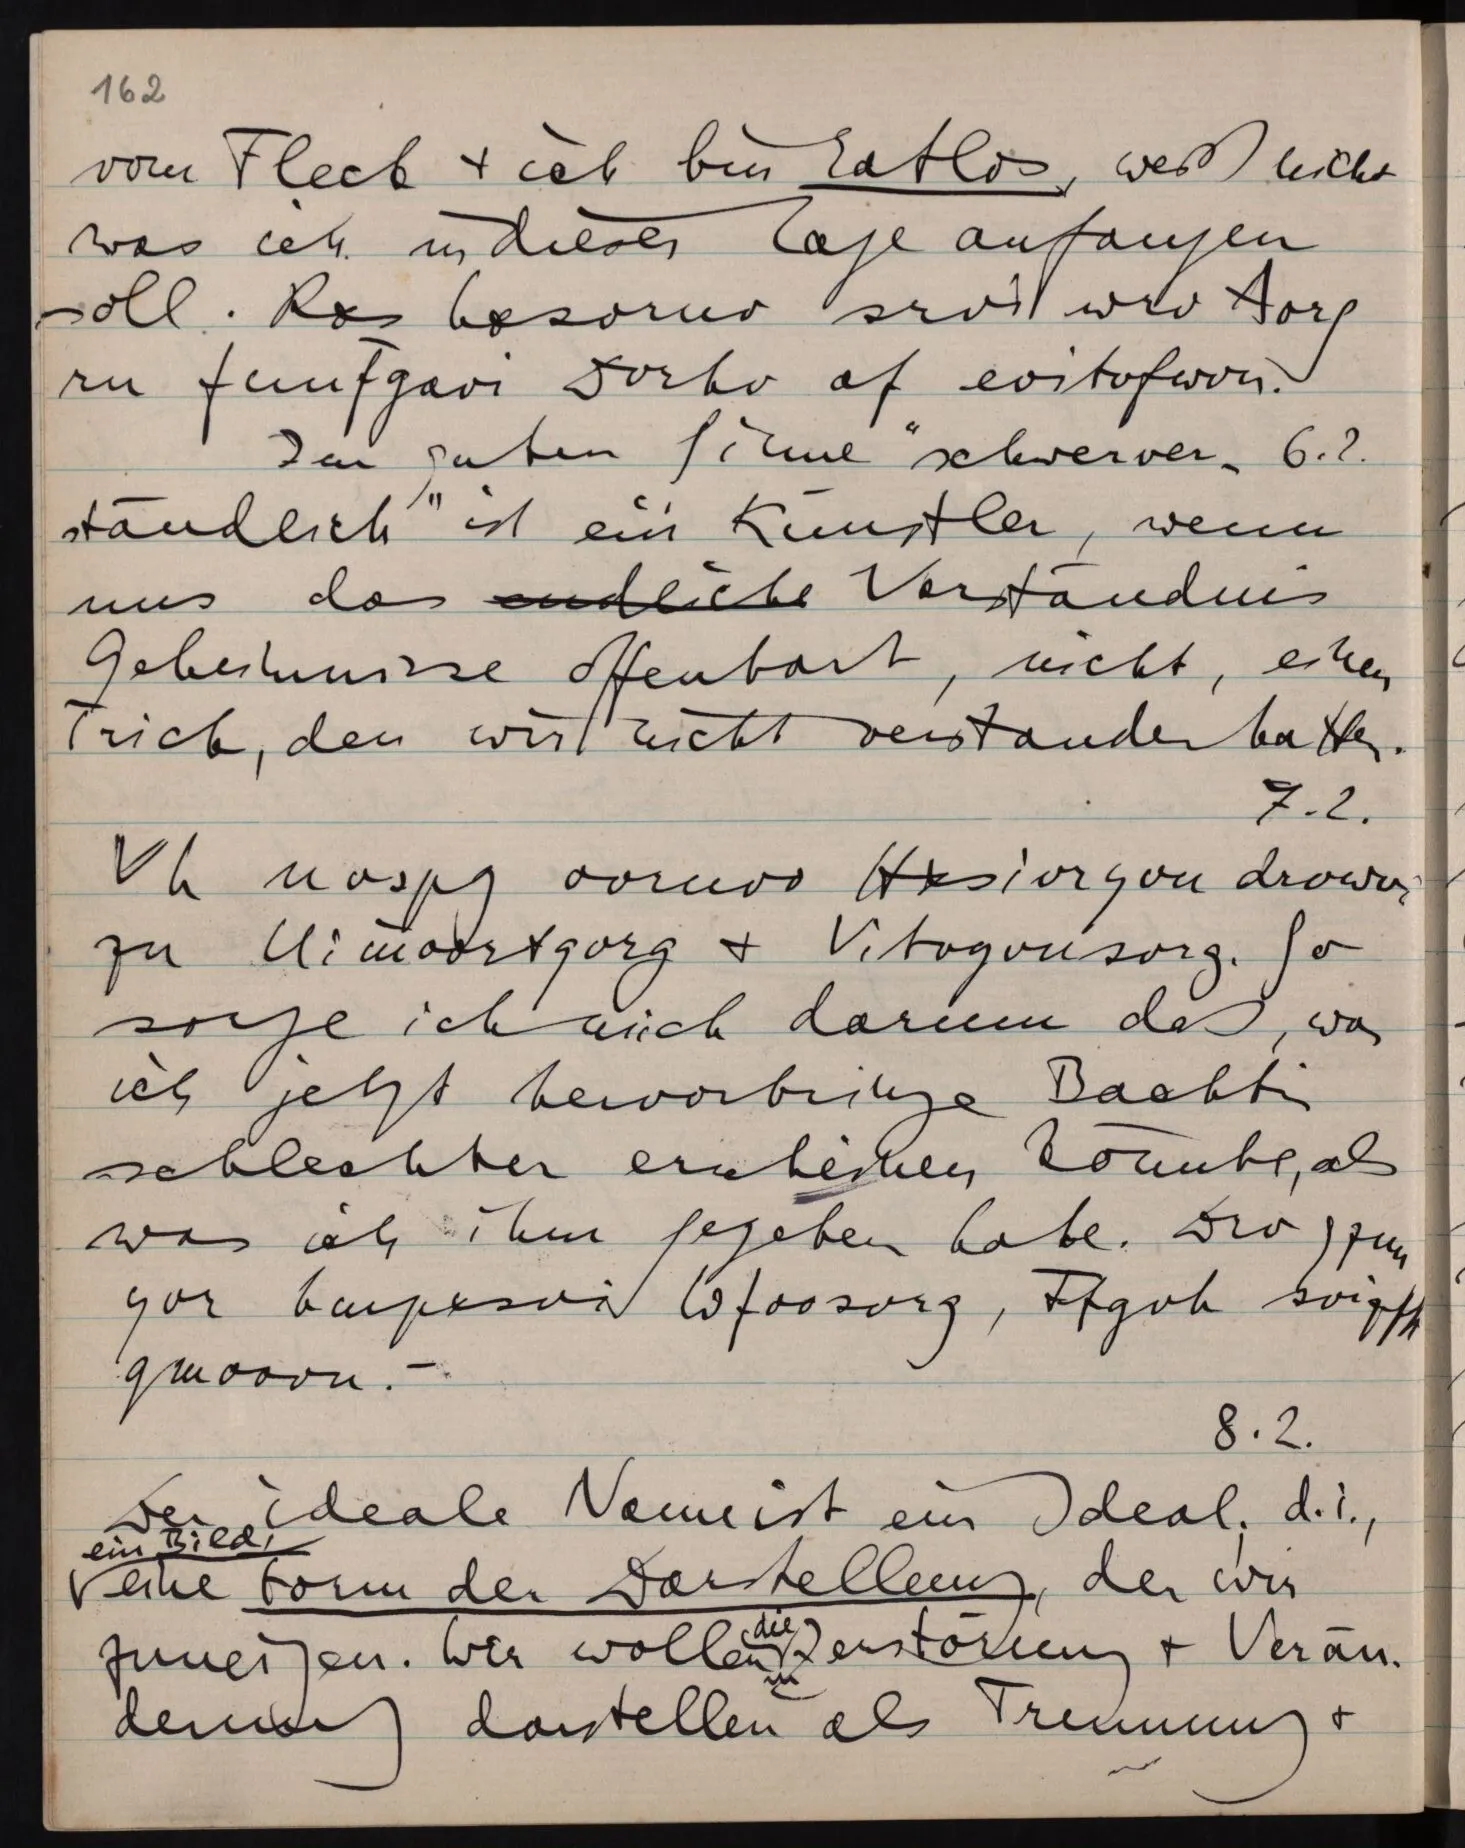 162
vom Fleck + ich bin ratlos, weiß nicht
was ich in dieser Lage anfangen
soll. Rxs hxsvrmv srvi wrv Avrg
rm fmmfgavi Dvrhv af evitvfwvm.
Im guten Sinne "schwerver- 6.2.
ständlich" ist ein Künstler, wenn
uns das endliche Verständnis
Geheimnisse offenbart, nicht, einen
Trick, den wir nicht verstanden hatten.
7.2.
Vh uvsog nvrmvn Hxsivryvm drvwvi
zm Uiönnrtpvrg + Vitvyvmsvrg. So
sorge ich mich darum daß, was
ich jetzt hervorbringe Bachtin
schlechter erscheinen könnte, als
was ich ihm gegeben habe. Drv pzmm
yvr hloxsvi Wfnnsvrg, Tfgvh svizfh
plnnvm. –
8.2.
Der ideale Name ist ein Ideal; d.i.,
ein Bild,
eine Form der Darstellung, der wir
zuneigen. Wir wollen die Zerstörung + Verän-
derung darstellen als Trennung +